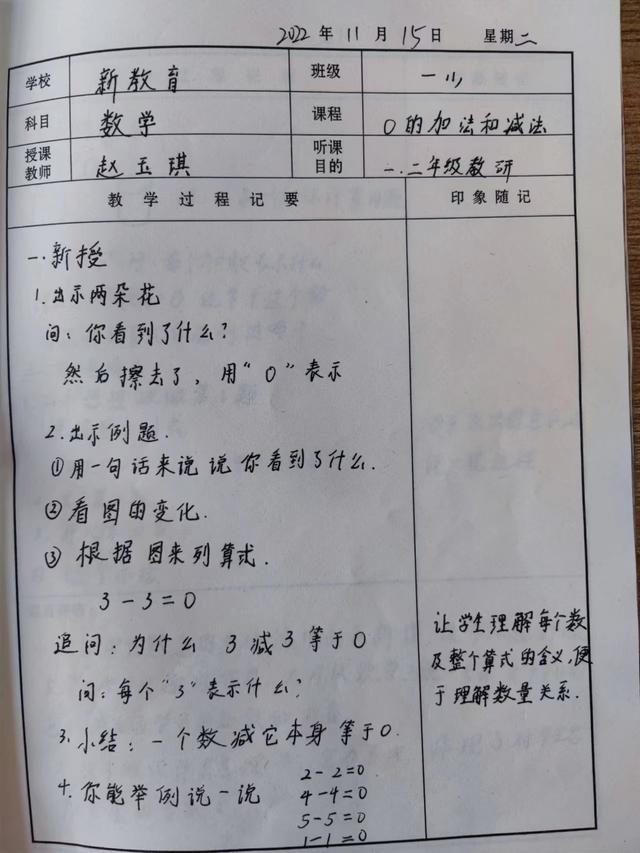 2022 年 11 月 15 日 星期二
学校 新教育 班级 一小
科目 数学 课程 0的加法和减法
授课教师 赵玉琪 听课目的 一.二年级教研
教 学 过 程 记 要 印 象 随 记
一.新授
1.出示两朵花
问:你看到了什么?
然后擦去了,用"0"表示
2.出示例题.
①用一句话来说说你看到了什么.
②看图的变化.
③根据图来列算式.
3-3=0
追问:为什么 3减3等于0
问:每个"3"表示什么?
让学生理解每个数
及整个算式的含义,便
于理解数量关系.
3.小结:一个数减它本身等于0.
4.你能举例说一说
2-2=0
4-4=0
5-5=0
1-1=0